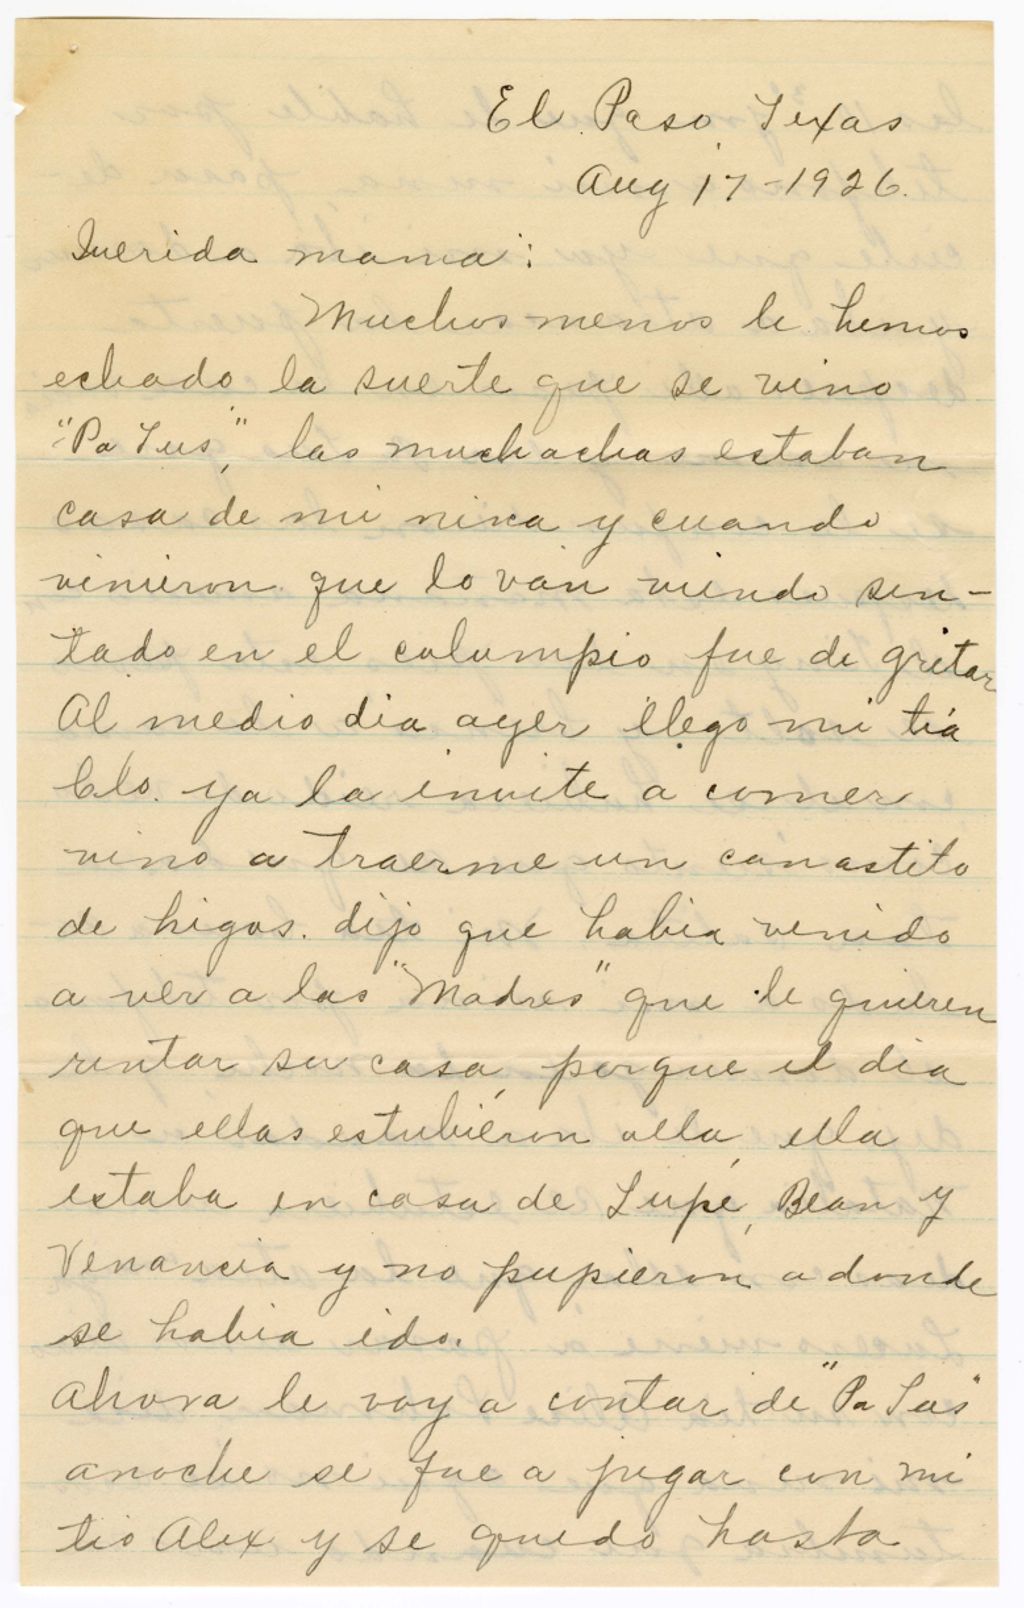 El Paso, Texas
Aug 17-1926.
Querida mama:
Muchos menos le hemos
echado la suerte que se vino
"Pa Tus", las muchachas estaban
casa de mi nina y cuando
vinieron que lo van viendo sen-
tado en el columpio fue de gritar
Al medio dia ayer llego mi tia
Clo. ya la invite a comer
vino a traerme un canastito
de higos. dijo que habia venido
a ver a las "Madres" que le quieren
rentar su casa, porque el dia
que ellas estubieron alla, ella
estaba en casa de Lupe, Bean y
Venancia y no pupieron a donde
se habia ido.
Ahora le voy a contar de "Pa Tus"
anoche se fue a jugar con mi
tio Alex y se quedo hasta